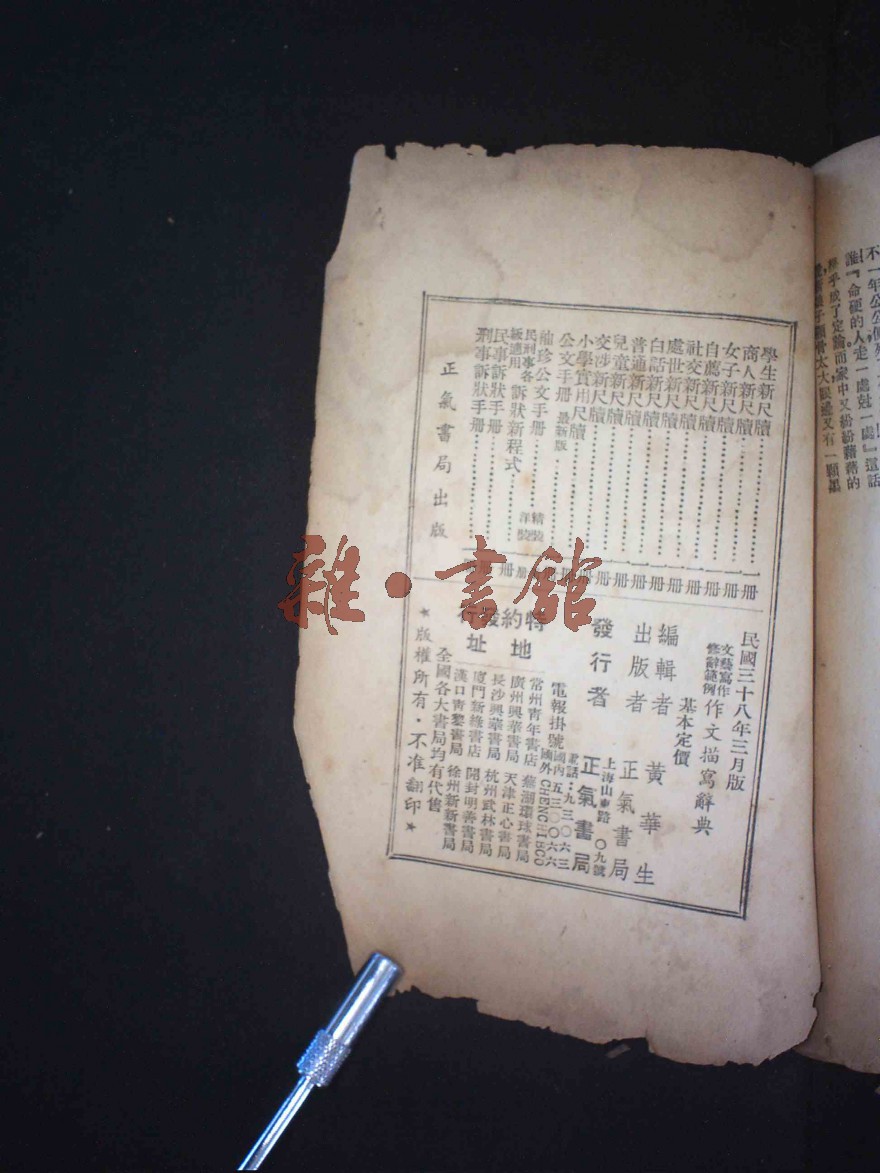 不一年公公便死
誰『命硬的人走一處尅一處』這話
乎成了定論。而家中又紛紛藉藉的
太大眼邊又有一顆黑
學生新尺牘 一冊
商人新尺牘 一冊
女子新尺牘 一冊
自薦新尺牘 一冊
社交新尺牘 一冊
處世新尺牘 一冊
白話新尺牘 一冊
普通新尺牘 一冊
兒童新尺牘 一冊
交涉新尺牘 一冊
小學實用尺牘 一冊
公文手冊 最新版 冊
袖珍公文手冊 冊
民刑事各級適用 訴狀新程式 精裝 洋裝 冊
民事訴狀手冊 冊
刑事訴狀手冊 冊
正氣書局出版
民國三十八年三月版
文藝寫作修辭範例 作文描寫辭典
基本定價
編輯者 黃華生
出版者 正氣書局
發行者 正氣書局
上海山東路 〇九號
電話：九三〇六三
電報掛號 國內五三〇〇六六 國外CHENCHISCO
特約發行地址
常州青年書店 蕪湖環球書局
廣州興華書局 天津正心書局
長沙興華書局 杭州武林書局
廈門新綠書店 開封明善書局
漢口青黎書局 徐州新新書局
全國各大書局均有代售
★版權所有・不准翻印★
雜・書館